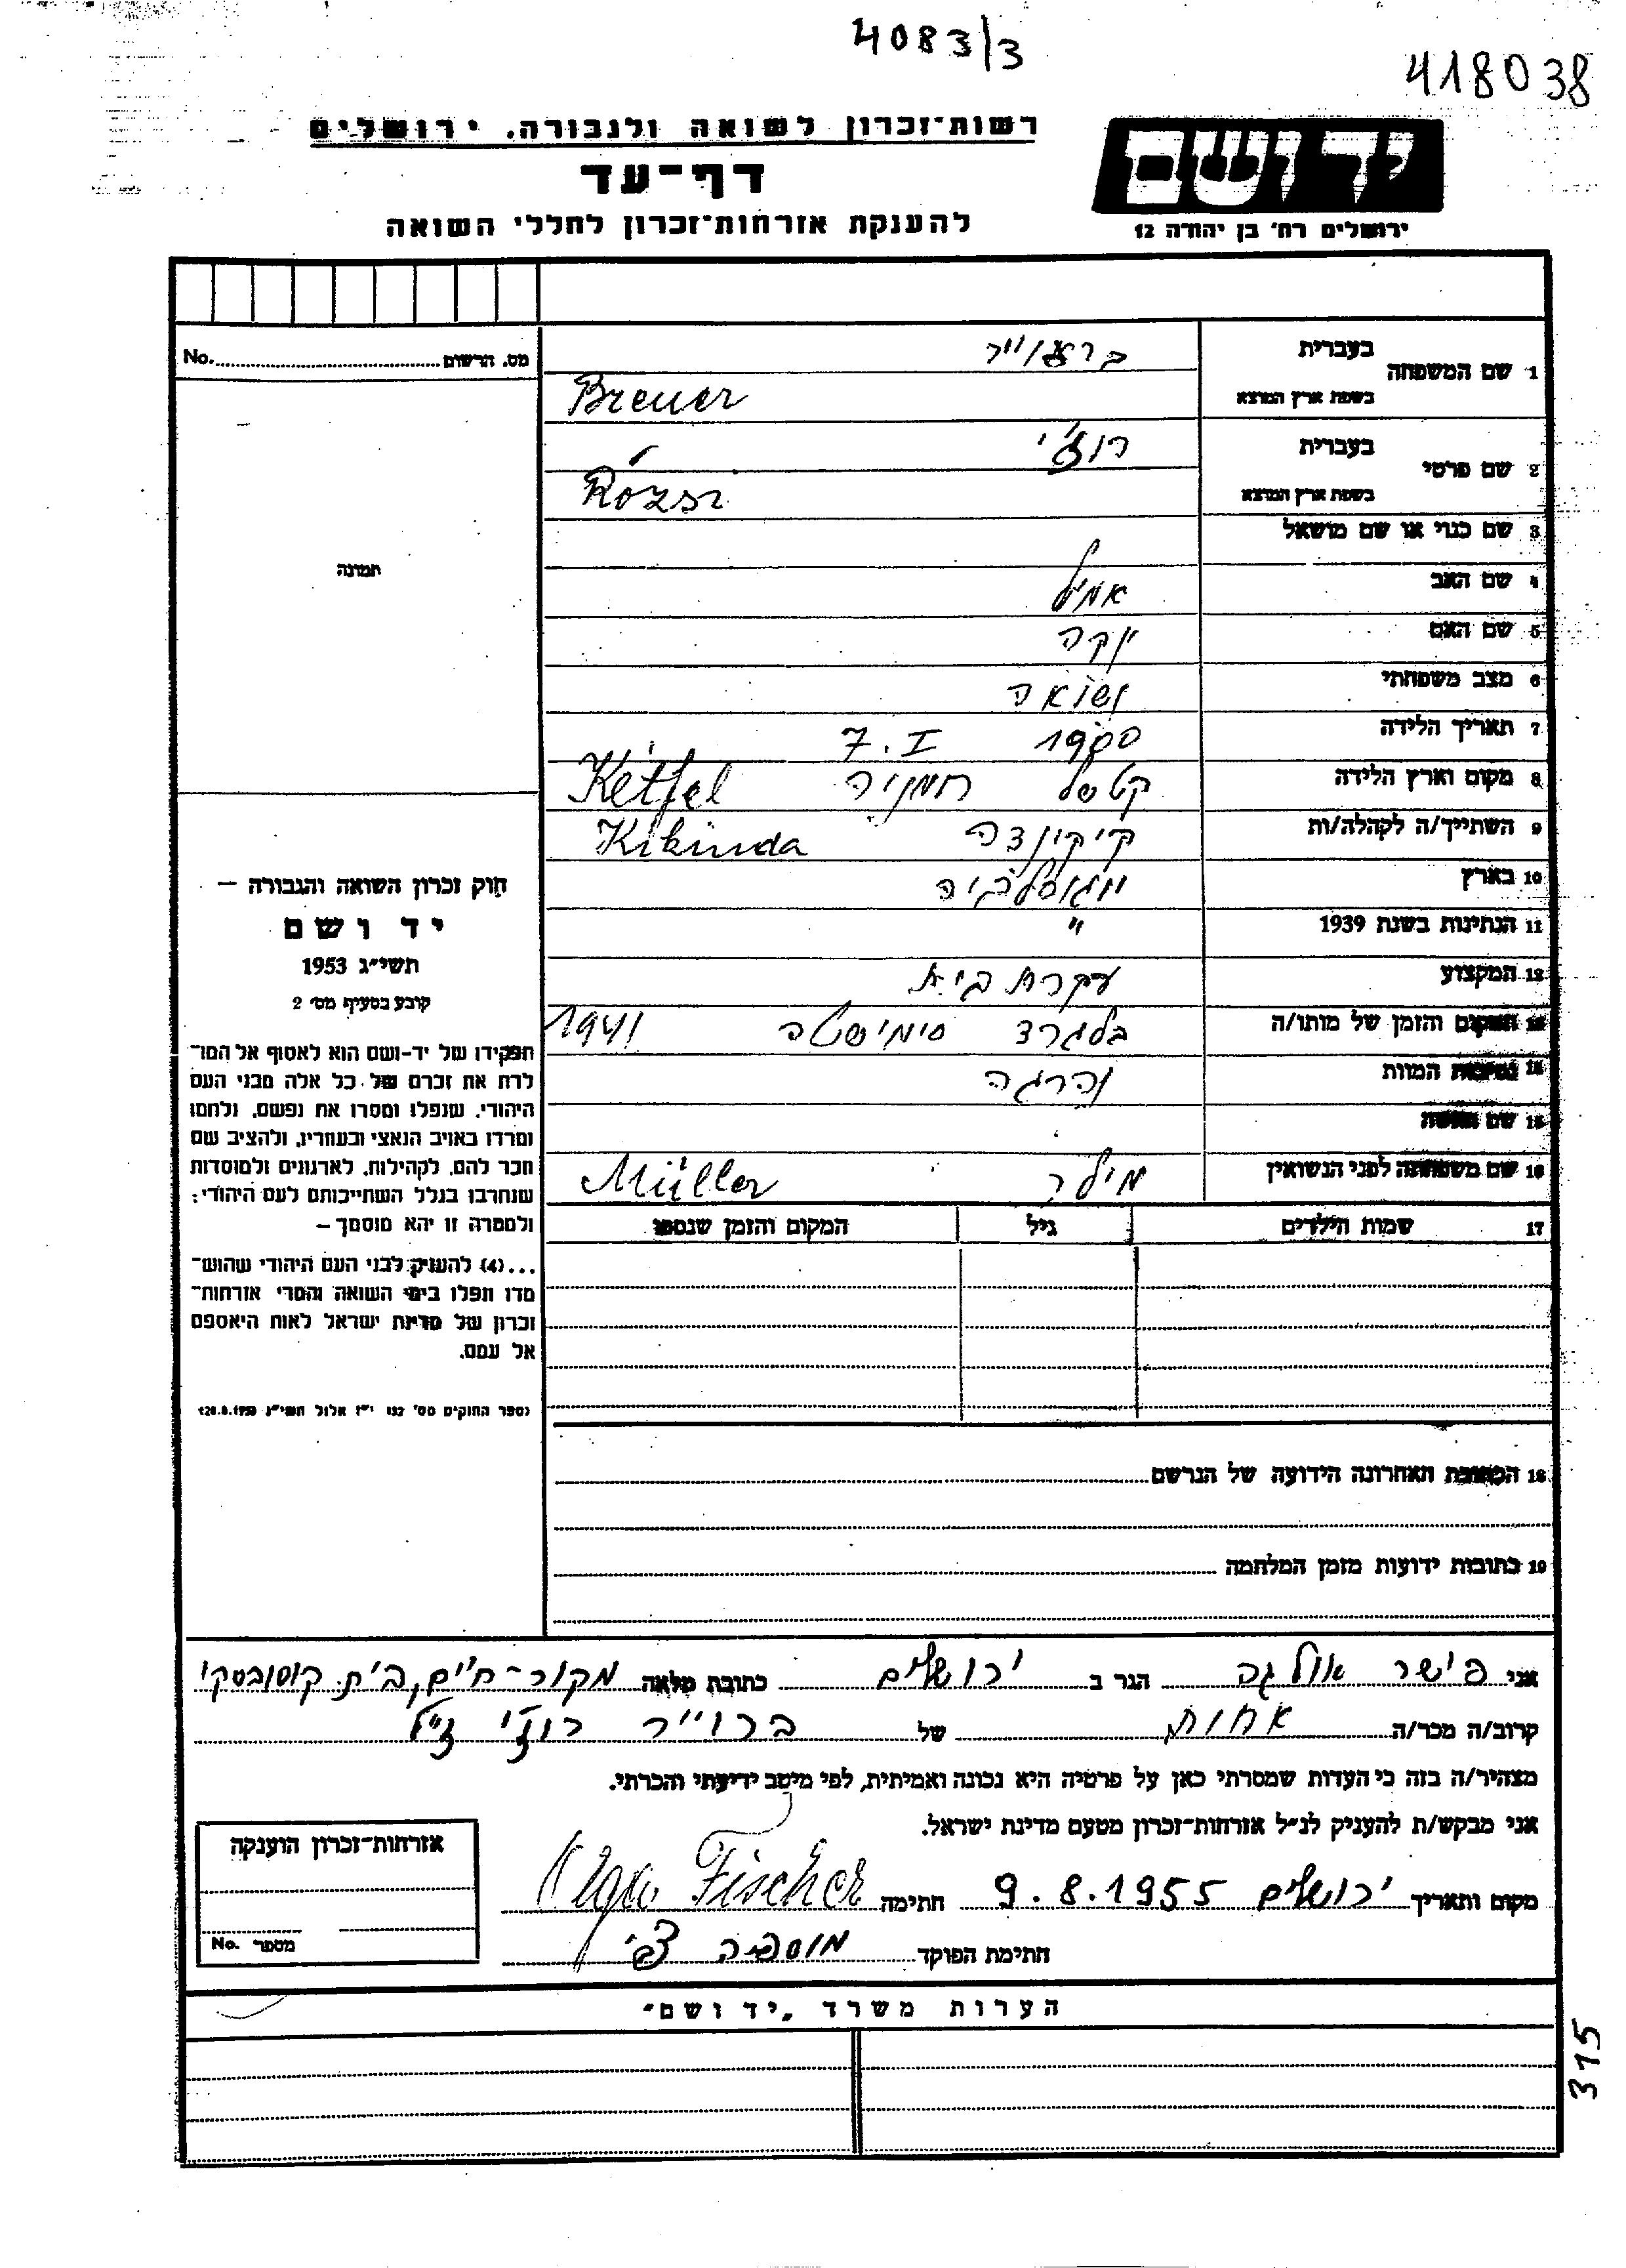 4083/3
418038
רשות־זכרון לשואה ולגבורה, ירושלים
דף־עד
להענקת אזרחות־זכרון לחללי השואה
יד ושם
ירושלים רח׳ בן יהודה 12
מס. הרשום No.
1 שם המשפחה
בעברית
בשפת ארץ המוצא
Breuer
2 שם פרטי
בעברית רוז׳י
בשפת ארץ המוצא Rózsi
3 שם כנוי או שם מושאל
תמונה
4 שם האב אמיל
5 שם האם
6 מצב משפחתי נשואה
7 תאריך הלידה 1900 7. I
8 מקום וארץ הלידה קטשל רומניה
9 השתייך/ה לקהלה/ות קיקינדה Kikinda
10 בארץ יוגוסלביה
11 הנתינות בשנת 1939 "
12 המקצוע עקרת בית
13 המקום והזמן של מותו/ה בלגרד סימישטה 1941
14 נסיבות המוות נהרגה
15 שם
16 שם משפחתה לפני הנשואין מילר Müller
17 שמות הילדים גיל המקום והזמן שנספו
18 הכתובת האחרונה הידועה של הנרשם
19 כתובות ידועות מזמן המלחמה
חוק זכרון השואה והגבורה —
יד ושם
תשי״ג 1953
קובע בסעיף מס׳ 2
תפקידו של יד-ושם הוא לאסוף אל המו־
לדת את זכרם של כל אלה מבני העם
היהודי, שנפלו ומסרו את נפשם, נלחמו
ומרדו באויב הנאצי ובעוזריו, ולהציב שם
וזכר להם, לקהילות, לארגונים ולמוסדות
שנחרבו בגלל השתייכותם לעם היהודי;
ולמטרה זו יהא מוסמך —
...(4) להעניק לבני העם היהודי שהוש־
מדו ונפלו בימי השואה והמרי אזרחות־
זכרון של מדינת ישראל לאות היאספם
אל עמם.
(ספר החוקים מס׳ 132 י״ז אלול תשי״ג 28.8.1953)
אני פישר אולגה הגר ב ירושלים כתובת מלאה מקור־חיים, בית קוסובסקי
קרוב/ה מכר/ה אחות של ברוייר רוז׳י ז״ל
מצהיר/ה בזה כי העדות שמסרתי כאן על פרטיה היא נכונה ואמיתית, לפי מיטב ידיעתי והכרתי.
אני מבקש/ת להעניק לנ״ל אזרחות־זכרון מטעם מדינת ישראל.
מקום ותאריך ירושלים 9.8.1955 חתימה Olga Fischer
חתימת הפוקד
אזרחות־זכרון הוענקה
מספר No.
הערות משרד „יד ושם״
315